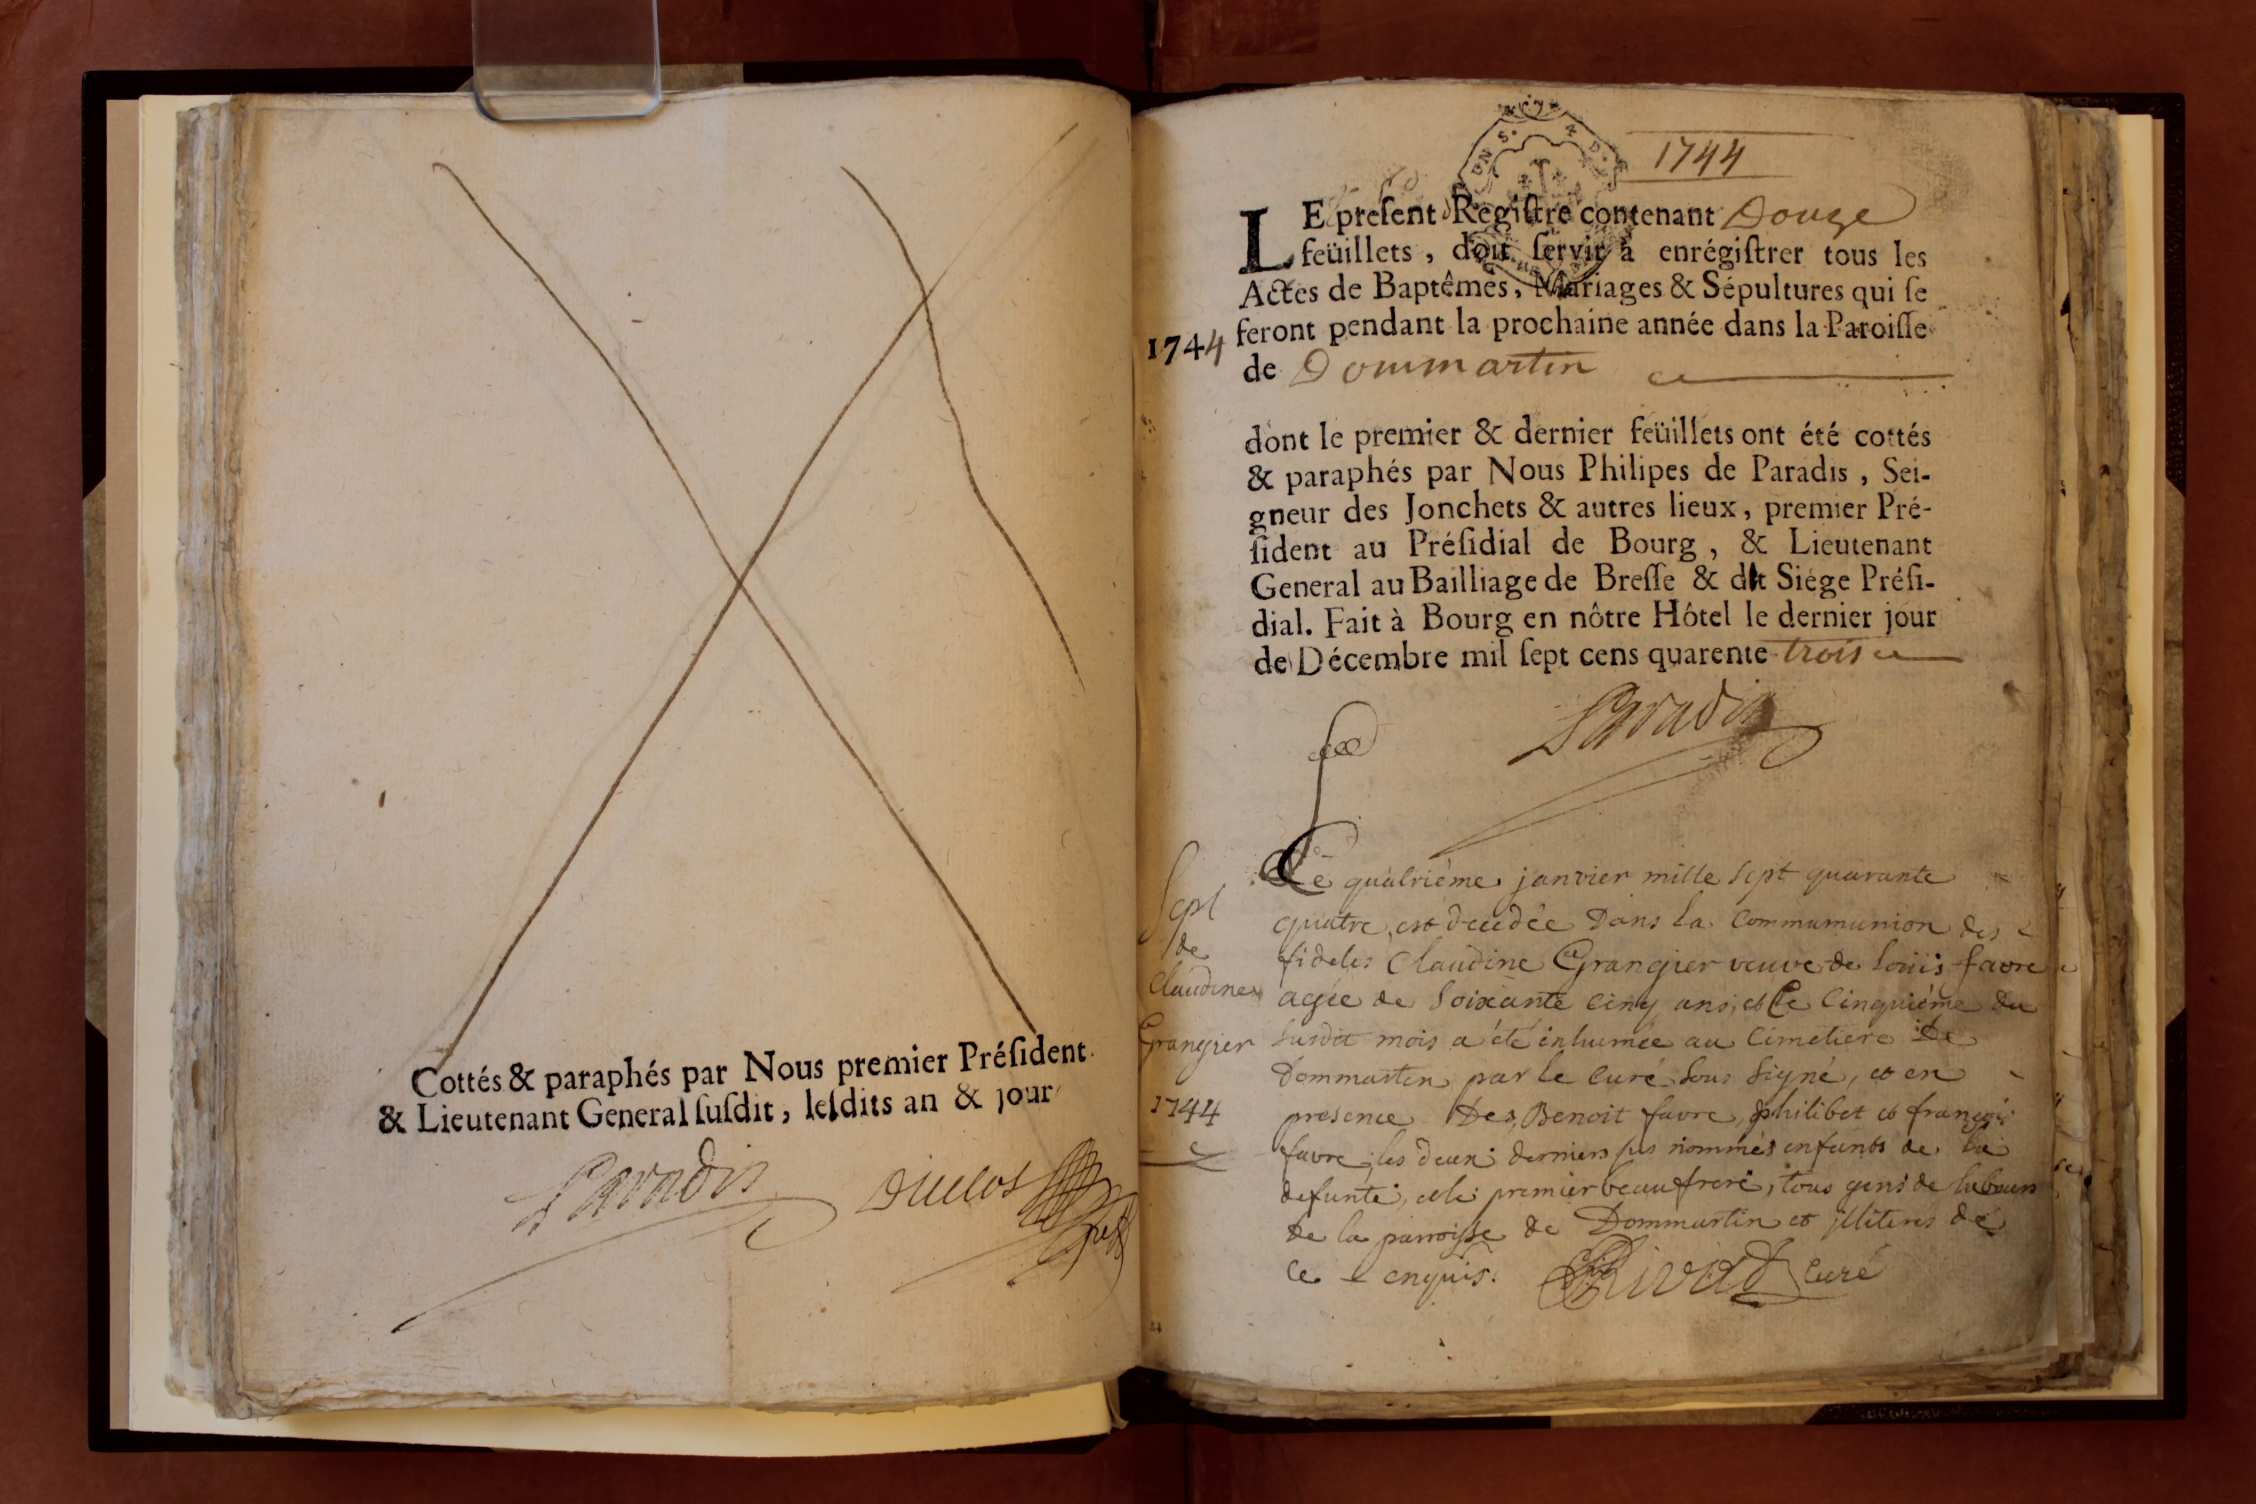 Cottés & paraphés par Nous premier Préſident
& Lieutenant General ſuſdit, leſdits an & jour
Paradis Duclos
1744
LE preſent Regiſtre contenant Douze
feüillets, doit ſervir à enrégiſtrer tous les
Actes de Baptêmes, Mariages & Sépultures qui ſe
feront pendant la prochaine année dans la Paroiſſe
1744
de Dommartin
dont le premier & dernier feüillets ont été cottés
& paraphés par Nous Philipes de Paradis, Sei-
gneur des Jonchets & autres lieux, premier Pré-
ſident au Préſidial de Bourg, & Lieutenant
General au Bailliage de Breſſe & dit Siége Préſi-
dial. Fait à Bourg en nôtre Hôtel le dernier jour
de Décembre mil ſept cens quarente trois
Paradis
Sept
de
Claudine
Grangier
1744
Le quatriéme janvier mille sept quarante
quatre, est decedée Dans la Commumunion des
fideles Claudine Grangier veuve de Loüis favre
agée de Soixante cinq ans, et le Cinquiéme du
Susdit mois a été inhumée au Cimetiere De
Dommartin par le Curé Sous Signé, et en
presence Des Benoit favre, philibet et françois
favre, les deux derniers sus nommés enfants de la
defunte, et le premier beaufrere, tous gens de labeurs
de la parroisse de Dommartin et illiteres de
ce enquis. Rivat Curé